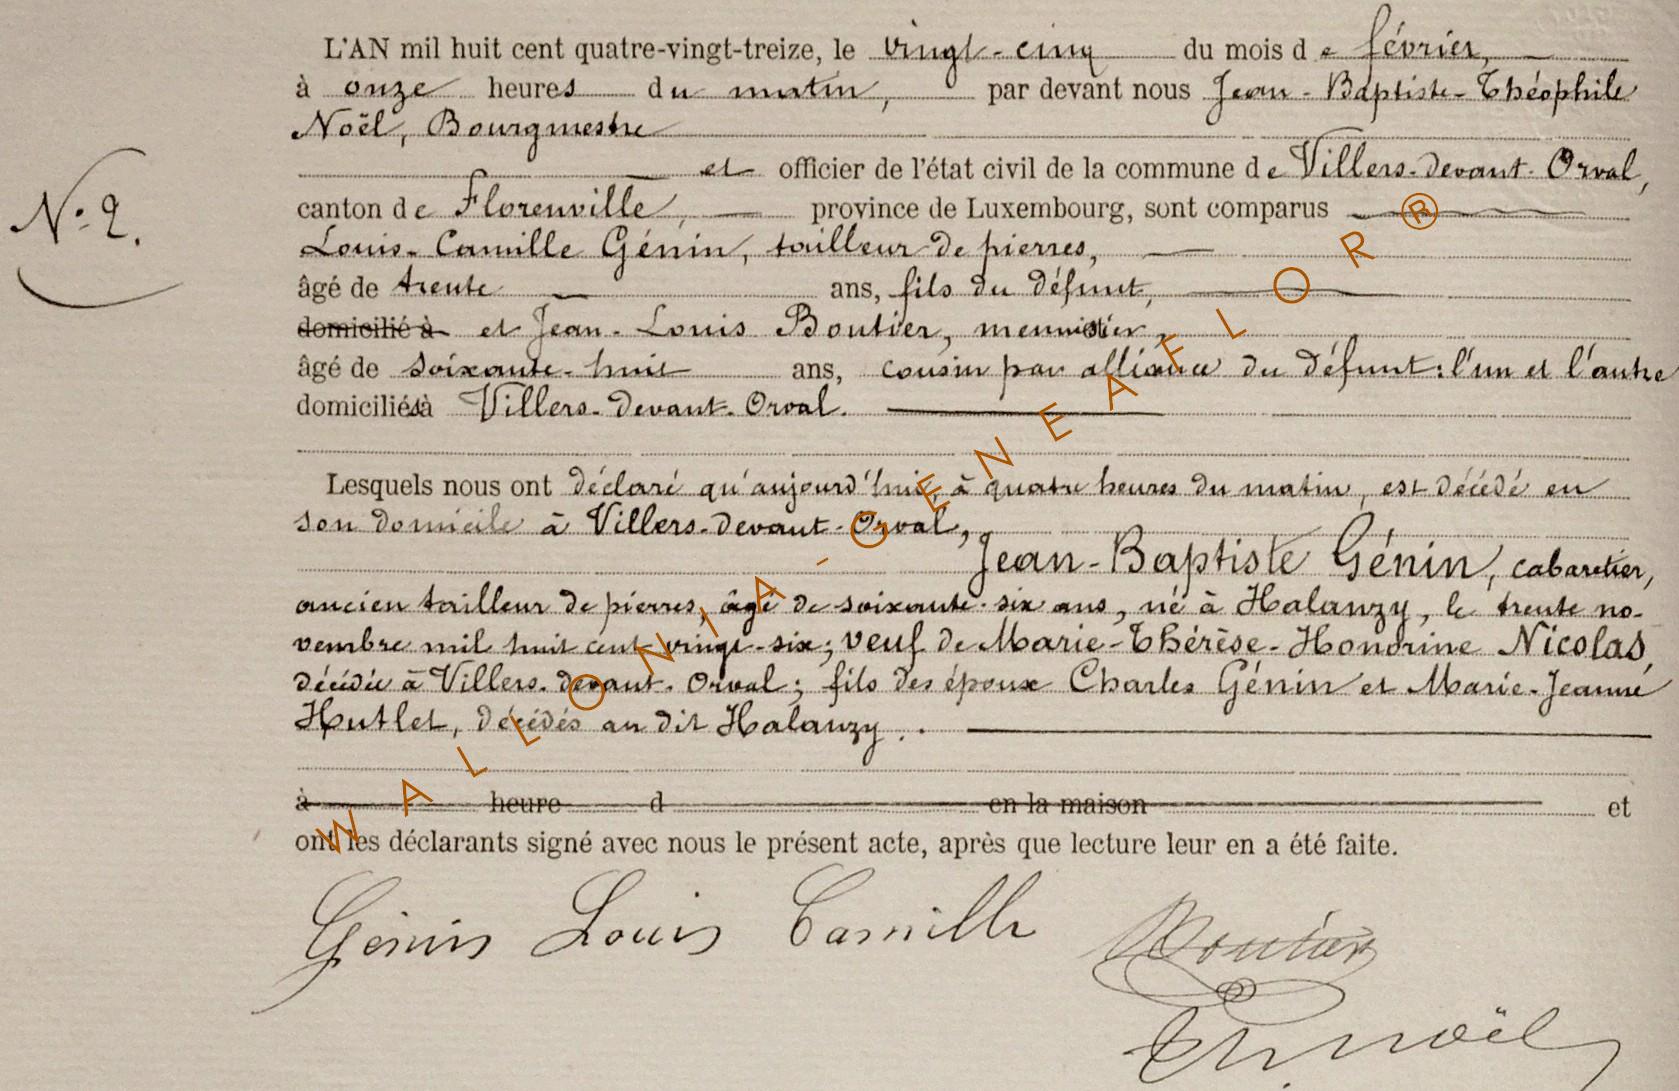 L'AN mil huit cent quatre-vingt-treize, le vingt-cinq du mois de février,
à onze heures du matin, par devant nous Jean-Baptiste-Théophile
Noël, Bourgmestre
et officier de l'état civil de la commune de Villers-devant-Orval,
N° 2.
canton de Florenville, province de Luxembourg, sont comparus
Louis-Camille Génin, tailleur de pierres,
âgé de trente ans, fils du défunt,
domicilié à et Jean-Louis Boutier, menuisier,
âgé de soixante-huit ans, cousin par alliance du défunt: l'un et l'autre
domiciliés à Villers-devant-Orval.
Lesquels nous ont déclaré qu'aujourd'hui, à quatre heures du matin, est décédé en
son domicile à Villers-devant-Orval,
Jean-Baptiste Génin, cabaretier,
ancien tailleur de pierres, âgé de soixante-six ans, né à Halanzy, le trente no-
vembre mil huit cent vingt-six; veuf de Marie-Thérèse-Hondrine Nicolas,
décédée à Villers-devant-Orval; fils des époux Charles Génin et Marie-Jeanne
Hutlet, décédés au dit Halanzy.
à heure d en la maison et
ont les déclarants signé avec nous le présent acte, après que lecture leur en a été faite.
Génin Louis Camille Boutier
Th. Noël
WALLONIA-GENEAFLOR®